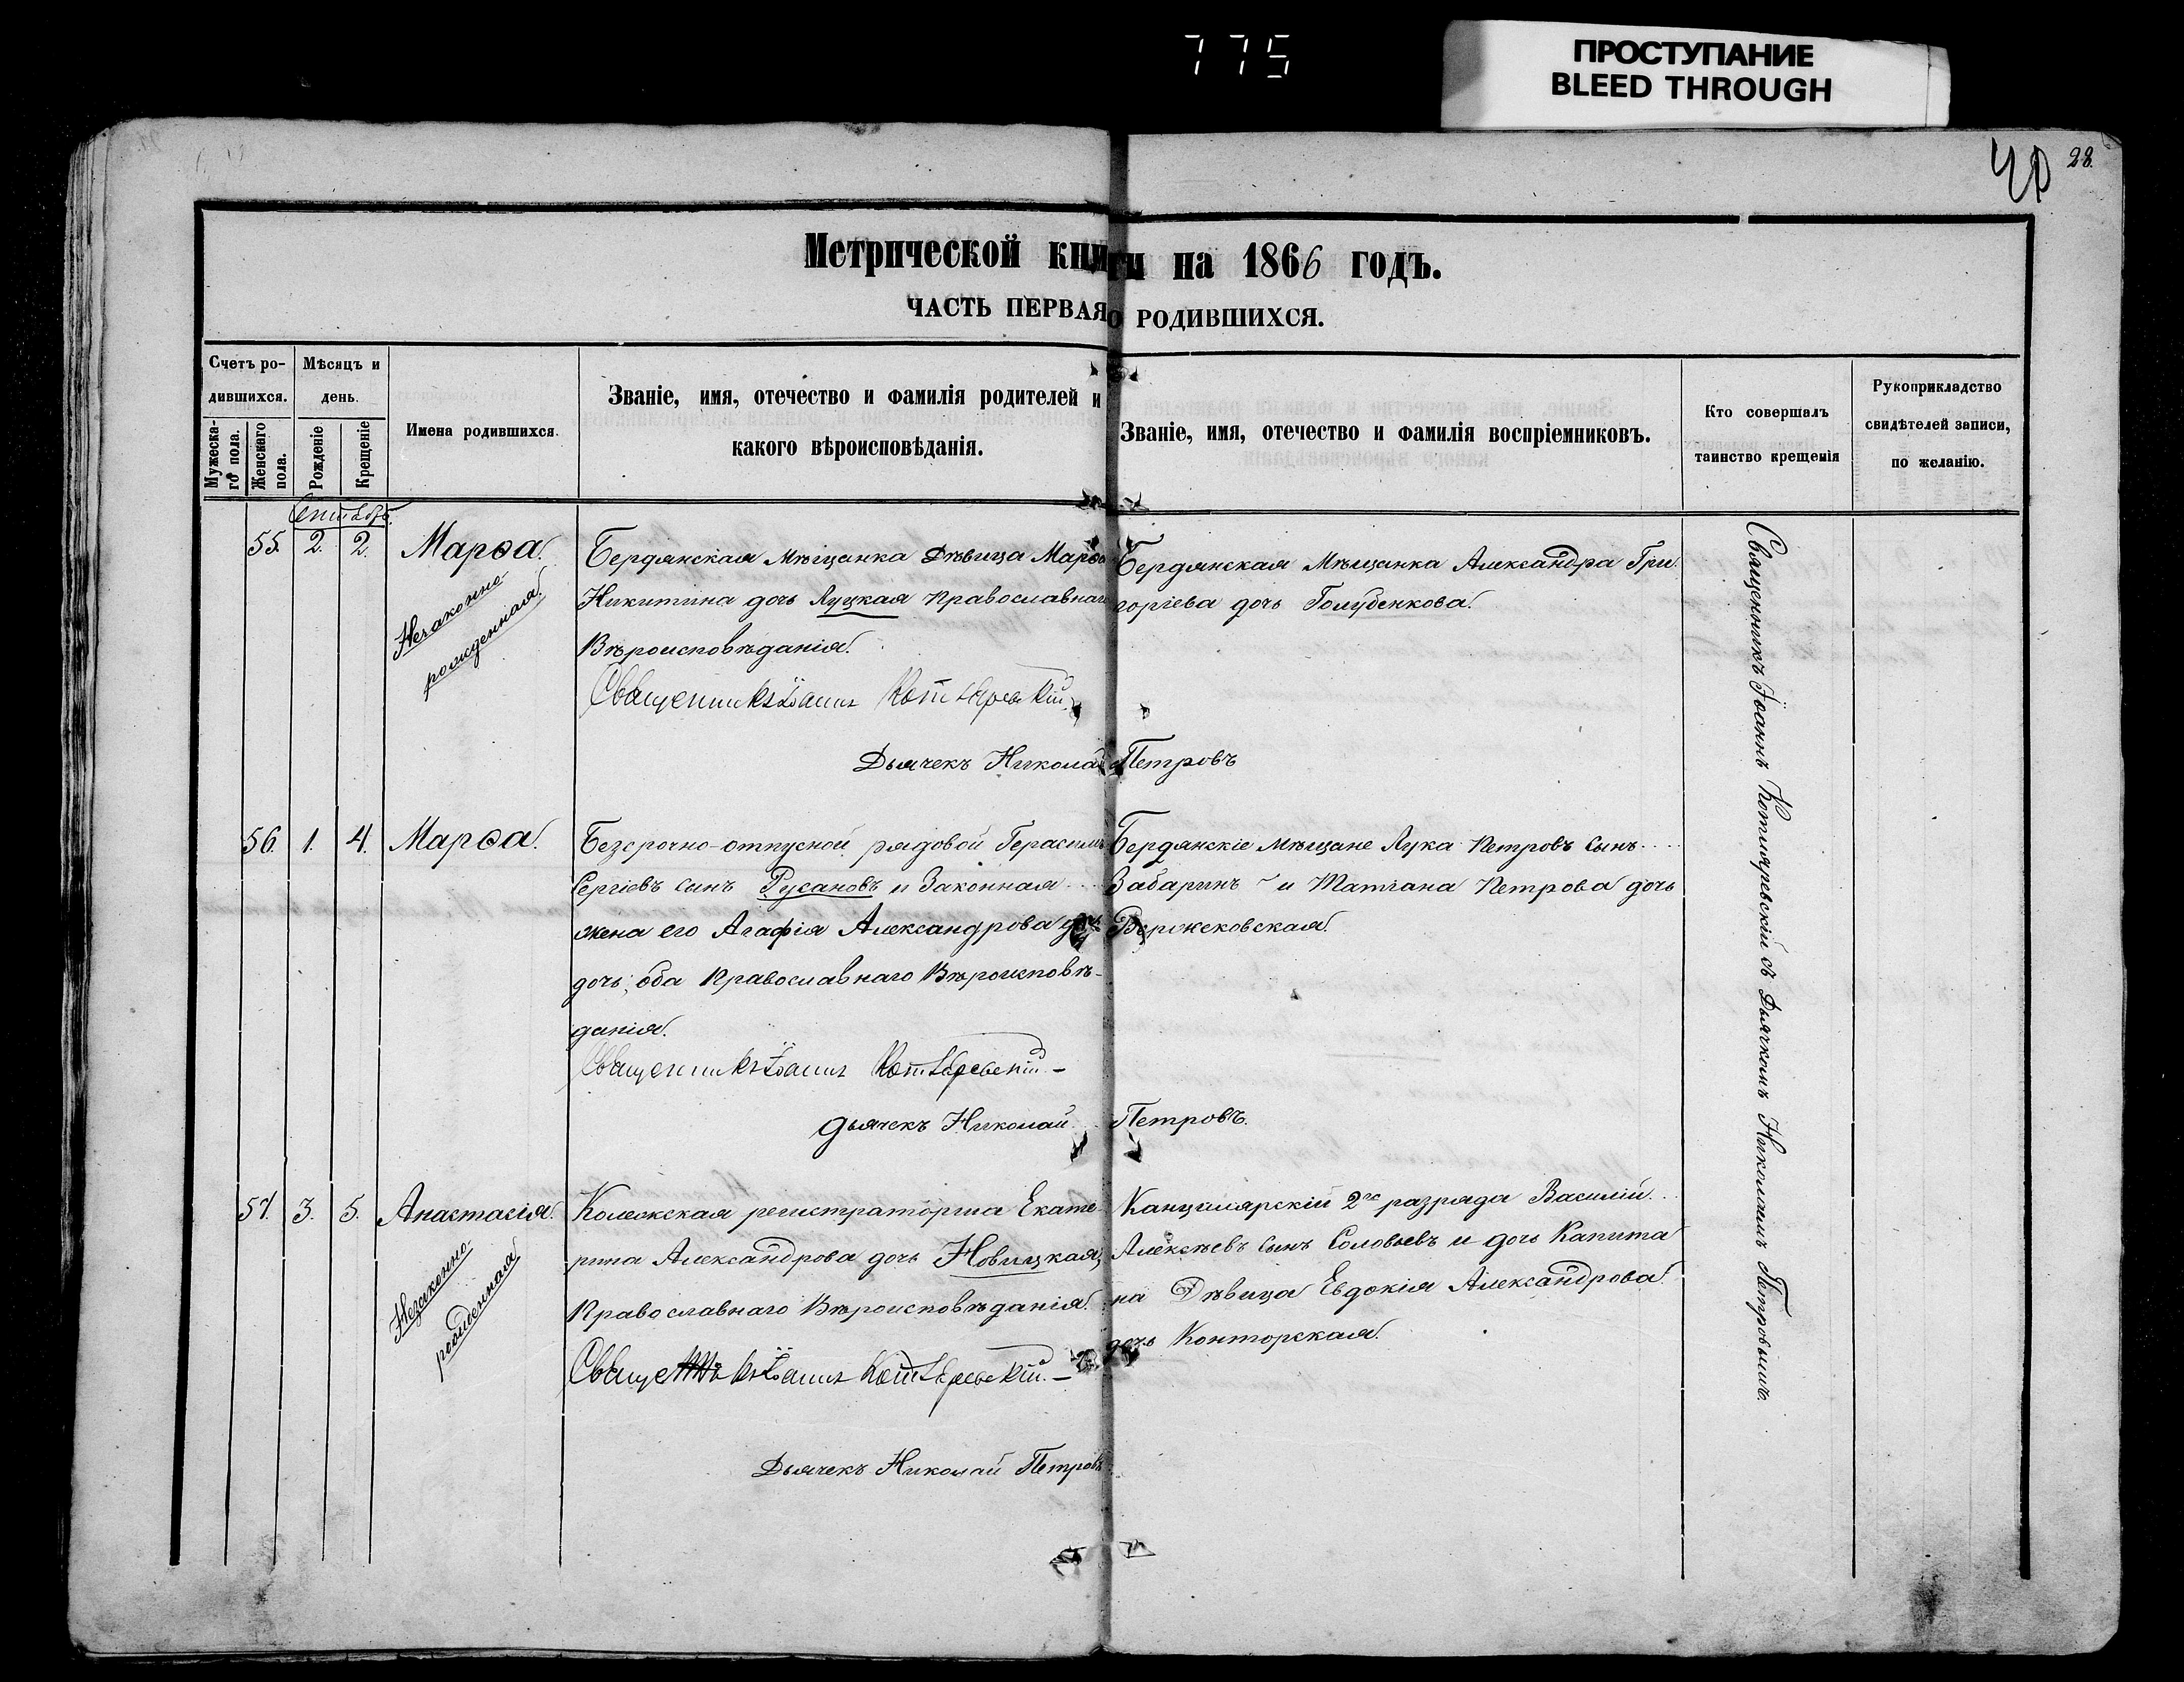 775
ПРОСТУПАНИЕ
BLEED THROUGH
28.
Метрической книги на 1866 годъ.
ЧАСТЬ ПЕРВАЯ О РОДИВШИХСЯ.
Счетъ ро-
дившихся.
Мужеска-
го пола.
Женскаго
пола.
Мѣсяцъ и
день.
Рожденіе
Крещеніе
Имена родившихся.
Званіе, имя, отечество и фамилія родителей и
какого вѣроисповѣданія.
Званіе, имя, отечество и фамилія воспріемниковъ.
Кто совершалъ
таинство крещенія
Рукоприкладство
свидѣтелей записи,
по желанію.
Сентябрь.
55. 2. 2. Марѳа.
Незаконно-
рожденная.
Бердянская мѣщанка дѣвица Марѳа
Никитина дочь Луцкая Православнаго
Вѣроисповѣданія.
Священникъ Іоаннъ Котляревскій
Дьячекъ Николай Петровъ
Бердянская Мѣщанка Александра Гри-
горіева дочь Голубенкова.
56. 1. 4. Марѳа.
Безсрочно-отпускной рядовой Герасимъ
Сергіевъ сынъ Русановъ и Законная
жена его Агафія Александрова
дочь, оба Православнаго Вѣроисповѣ-
данія.
Священникъ Іоаннъ Котляревскій
Дьячекъ Николай Петровъ.
Бердянскіе мѣщане Лука Петровъ сынъ
Забаринъ и Татіана Петрова дочь
57. 3. 5. Анастасія.
Незаконно-
рожденная
Колежская регистраторша Екате-
рина Александрова дочь Новицкая,
Православнаго Вѣроисповѣданія.
Священникъ Іоаннъ Котляревскій
Дьячекъ Николай Петровъ
Канцелярскій 2го разряда Василій
Алексѣевъ сынъ Соловьевъ и дочь Капита
на Дѣвица Евдокія Александрова
дочь Конторская.
Священникъ Іоаннъ Котляревскій съ Дьячкомъ Николаемъ Петровымъ.